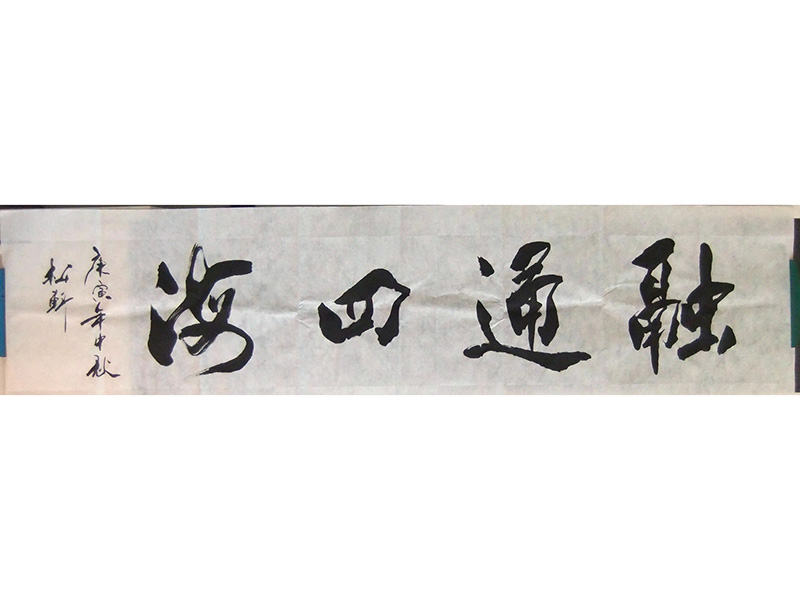 融通四海
庚寅年中秋
松軒